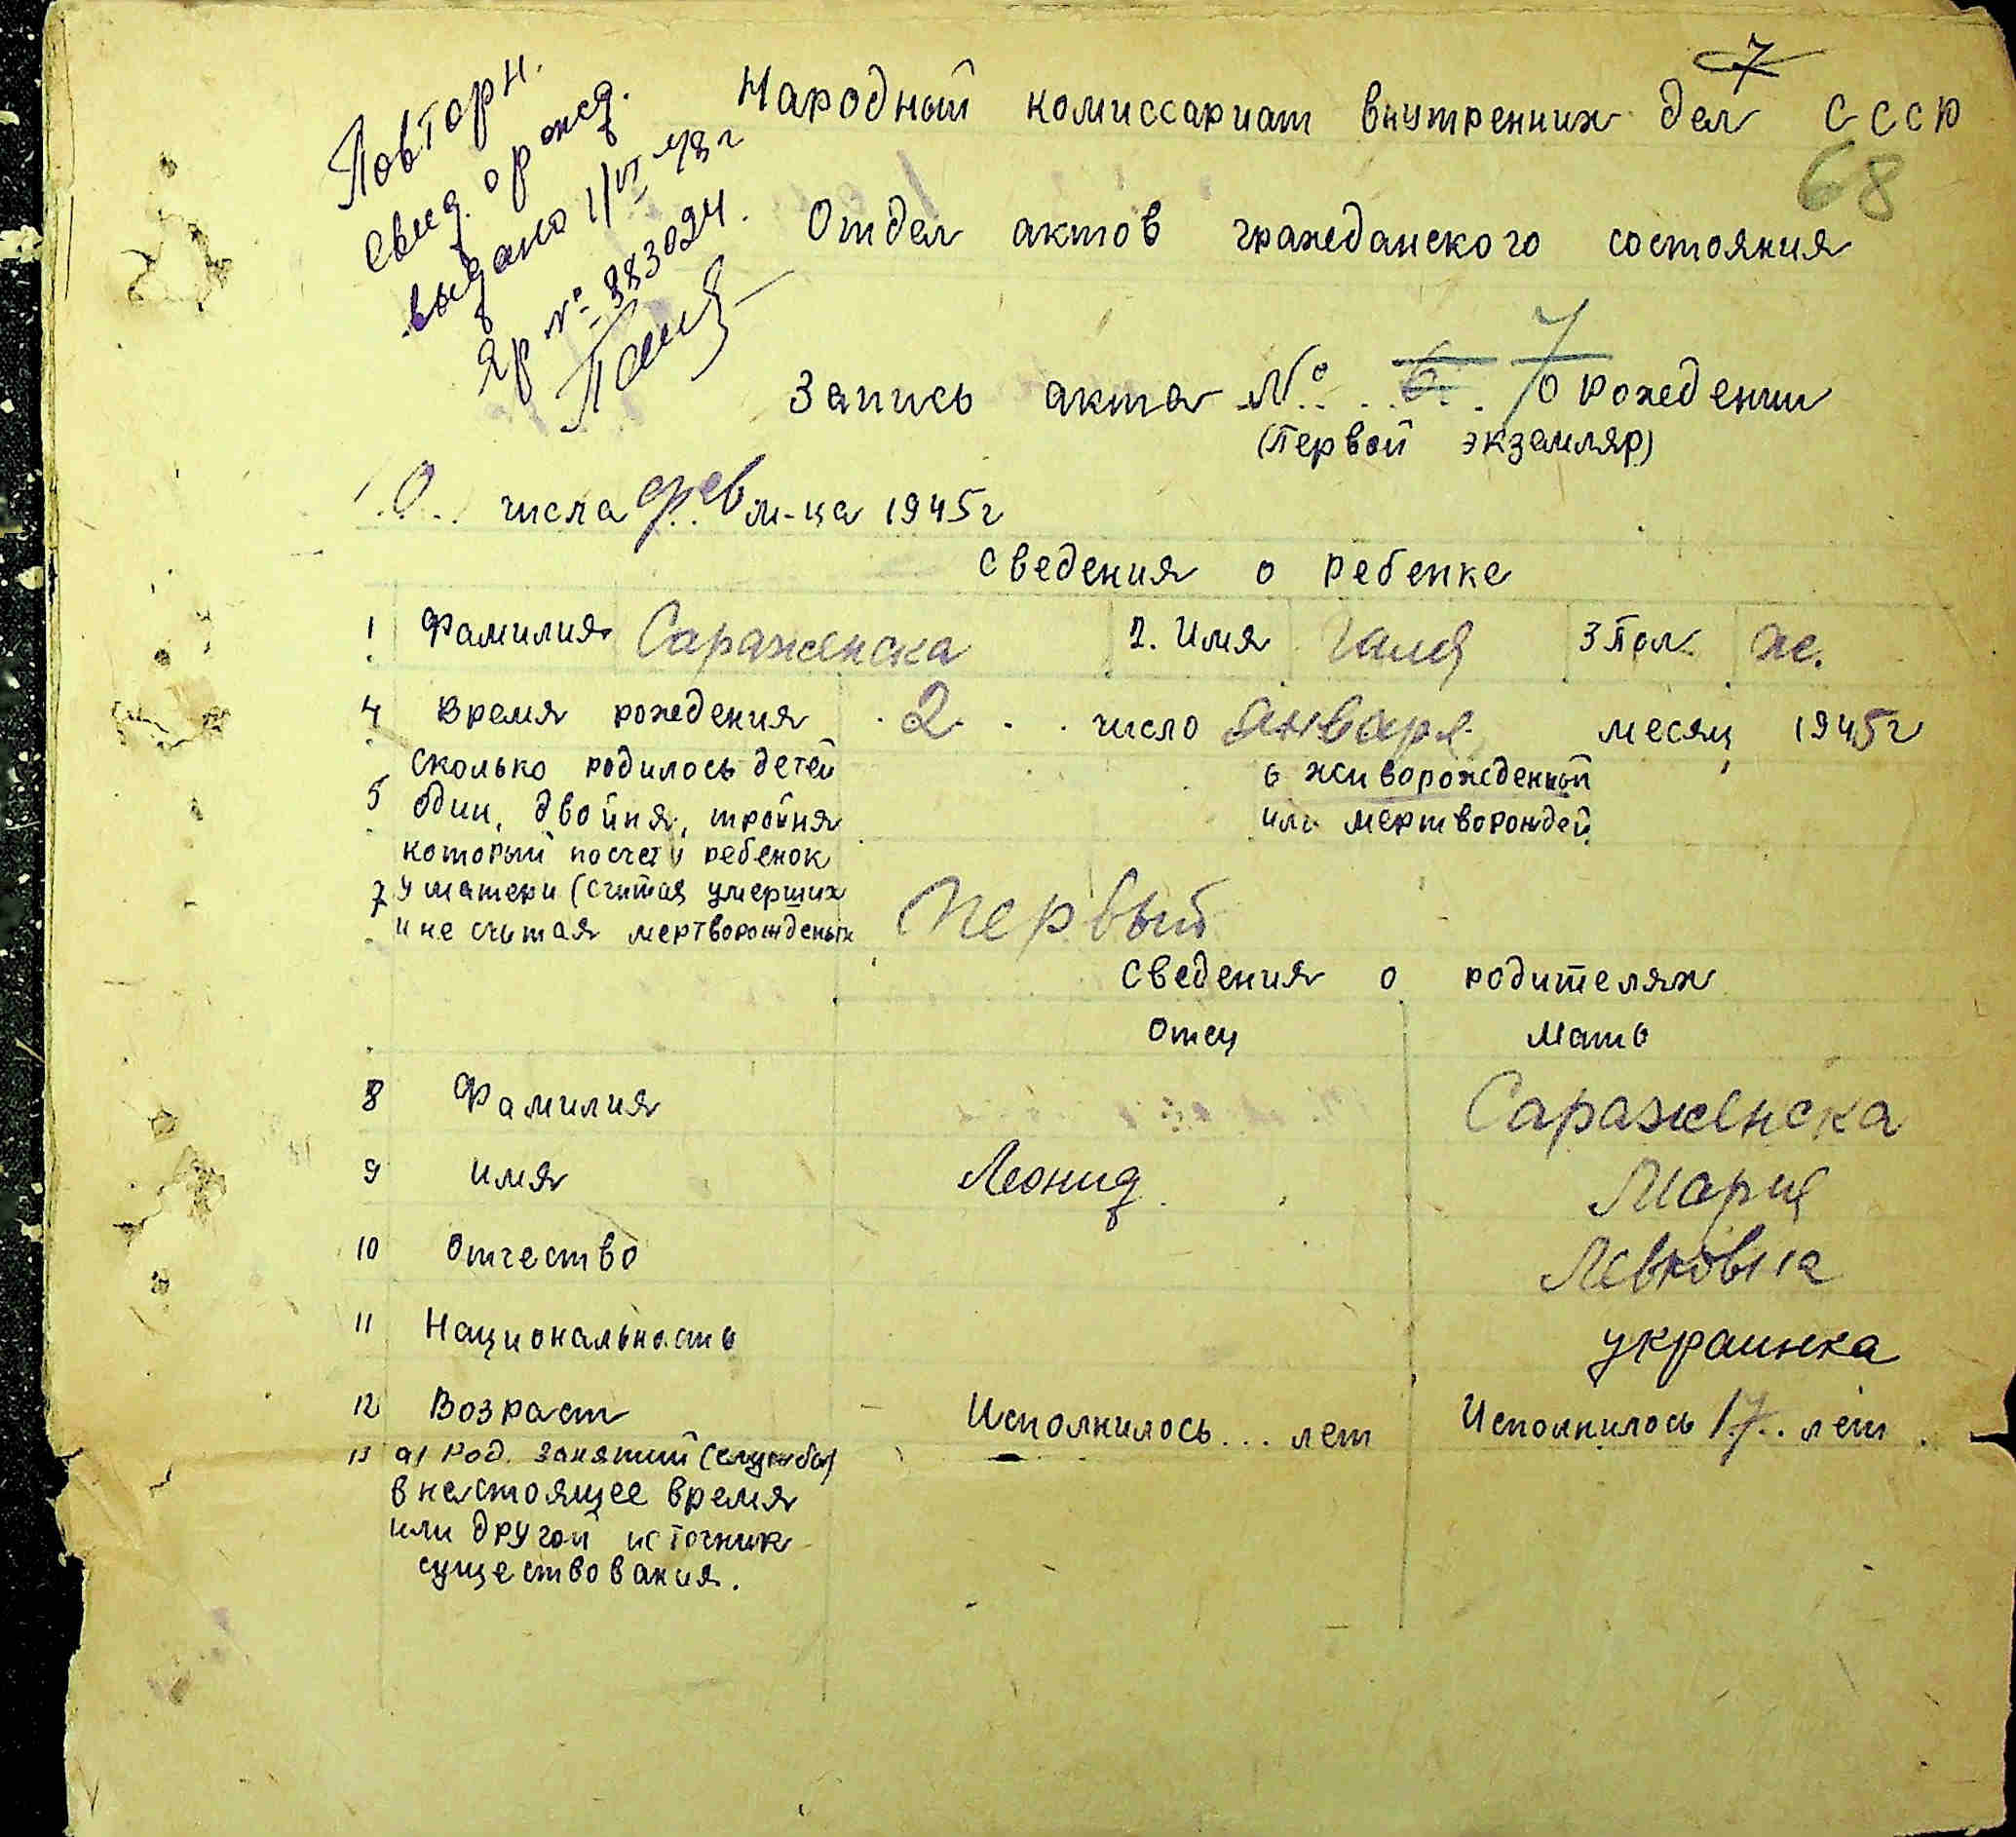 7
Народный комиссариат внутренних дел СССР
68
Повторн.
свид. о рожд.
выдано 1/VI 48 г
ЯР № 383024.
Отдел актов гражданского состояния
Запись акта № 6 7 о рождении
(первой экземляр)
10 числа фев м-ца 1945 г
Сведения о ребенке
1 Фамилия Сараженска 2. Имя Галя 3 Пол ж.
4 Время рождения 2 число Января месяц 1945 г
5 Сколько родилось детей один, двойня, тройня
6 живорожденной
или мертворождей
7 который посчету ребенок
у матери (считая умерших
и не считая мертворожденых
Первый
Сведения о родителях
Отец Мать
8 Фамилия Сараженска
9 Имя Леонид Мария
10 Отчество Левковна
11 Национальность украинка
12 Возраст Исполнилось ... лет Исполнилось 17 .. лет
13 а) Род. занятий (службы)
в настоящее время
или другой источник
существования.